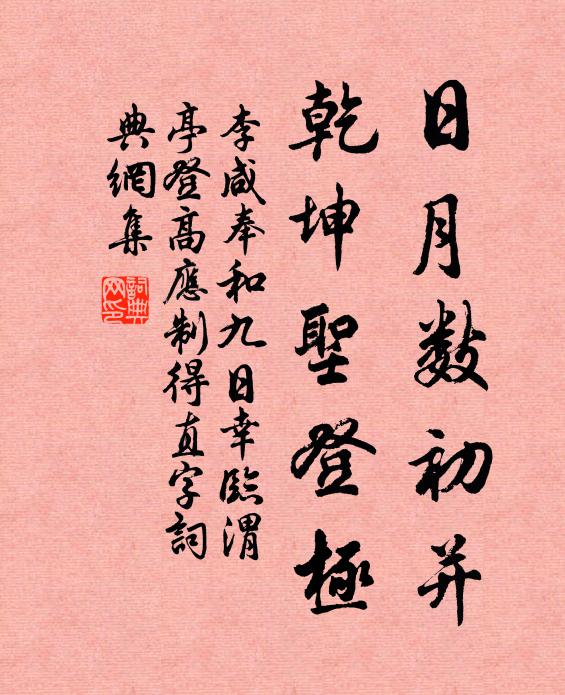 日月數初并
乾坤聖登極
李咸奉和九日幸臨渭
亭登高應制得直字詞
典網集
詞典网印